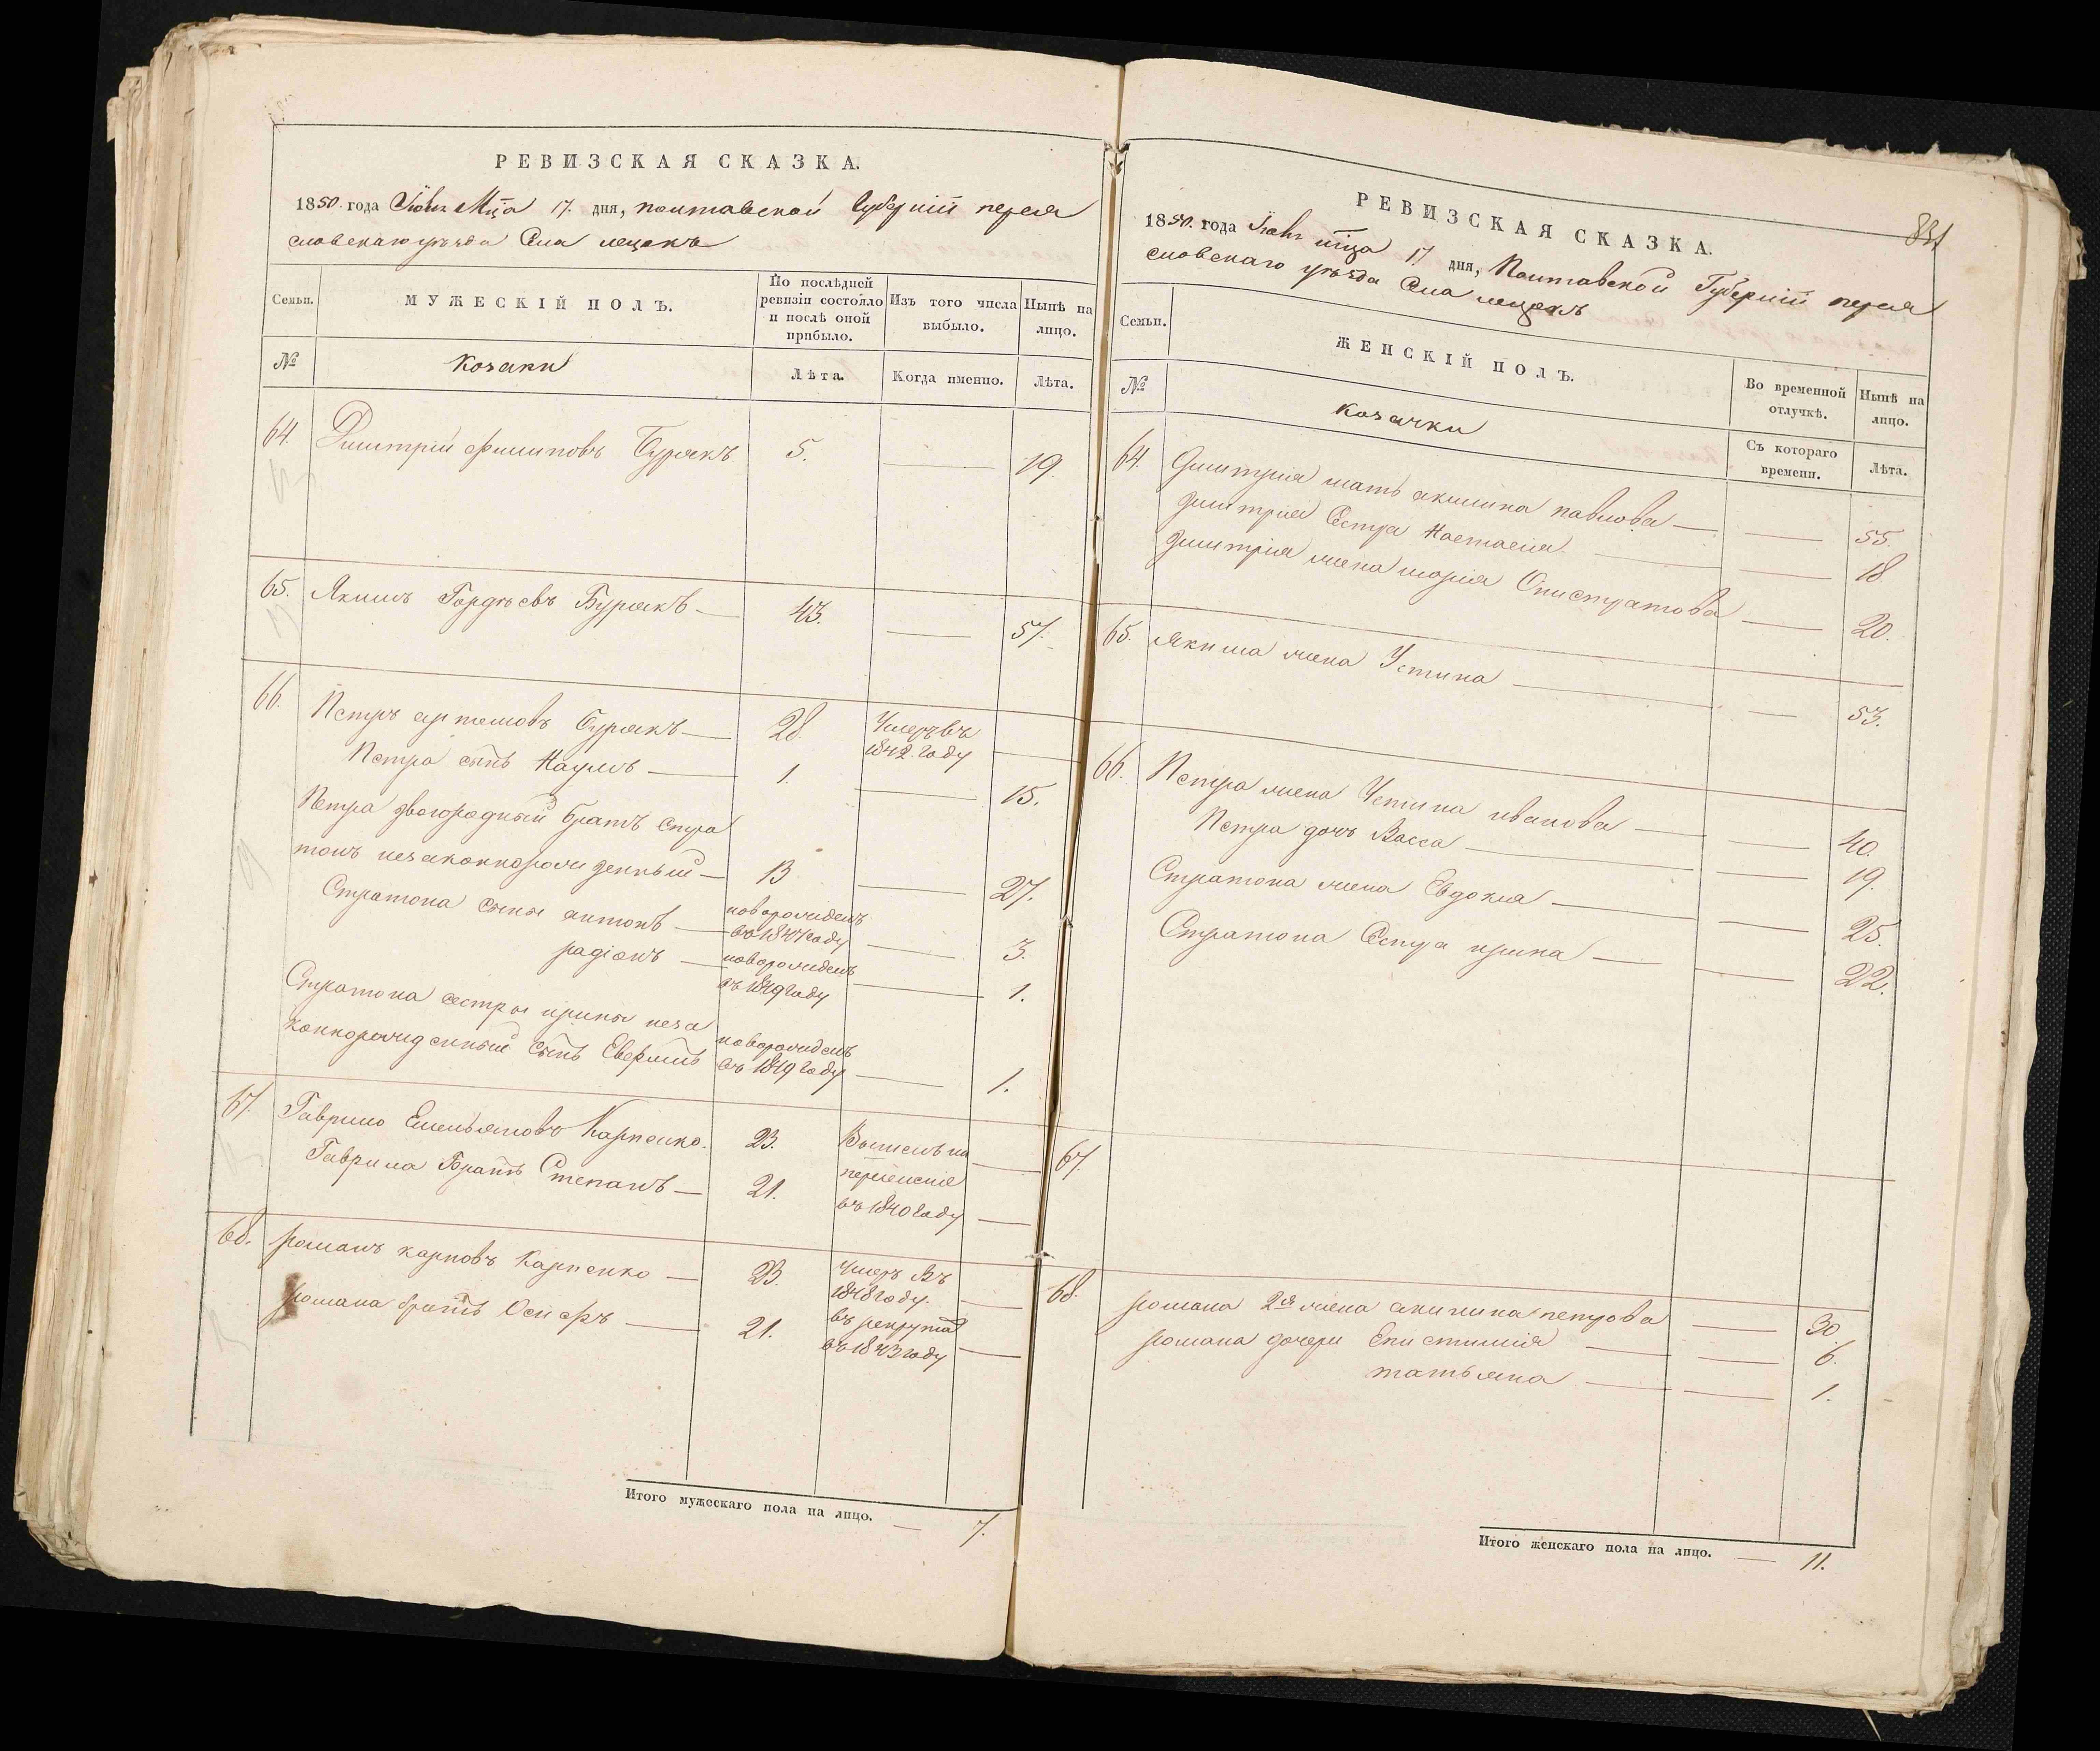 РЕВИЗСКАЯ СКАЗКА.
1850 года Іюня Мца 17. дня, полтавской Губерніи перея
славскаго уѣзда Села лецокъ
Семьи.
МУЖЕСКІЙ ПОЛЪ.
По послѣдней ревизіи состояло и послѣ оной прибыло.
Изъ того числа выбыло.
Нынѣ на лицо.
№
козаки
Лѣта.
Когда именно.
Лѣта.
64. Дмитрій Филиповъ Бурякъ 5. — 19.
65. Якимъ Гордѣевъ Бурякъ — 43. — 57.
66. Петръ артемовъ Бурякъ — 28. Умеръ въ
1842. Году —
Петра сынъ Наумъ — 1. — 15.
Петра двоюродный братъ Стра
тонъ незаконнорожденный — 13 — 27.
Стратона сыны антонъ — новорожденъ
въ 1847 году — 3.
радіонъ — новорожденъ
въ 1849 году — 1.
Стратона сестры ирины неза
коннорожденный сынъ новорожденъ
въ 1849 году — 1.
67. Гаврило Емельяновъ Карпенко. 23.
Гаврила Братъ Степанъ — 21.
въ 1840 году —
68. романъ карповъ Карпенко — 23. умеръ Въ
1848 году. —
романа братъ Осифъ — 21. въ рекрута
въ 1843 году —
Итого мужескаго пола на лицо. — 7.
831
РЕВИЗСКАЯ СКАЗКА.
1850. года Іюня мца 17 дня, Полтавской Губерніи перея
славскаго уѣзда Села лецокъ
Семьи.
ЖЕНСКІЙ ПОЛЪ.
Во временной отлучкѣ.
Нынѣ на лицо.
№
козачки
Съ котораго времени.
Лѣта.
64. Дмитрія мать акилина павлова — — 55.
Дмитрія Сестра Настасія — — 18
Дмитрія жена марія Опистратова — 20.
65. Якима жена Устина — — 53.
66. Петра жена Устина иванова — — 40.
Петра дочь Васса — — 19.
Стратона жена Евдокія — — 25.
Стратона Сестра ирина — — 22.
67.
68. романа 2я жена акилина петрова — 30.
романа дочери Епистимія — — 6.
татьяна — — 1.
Итого женскаго пола на лицо. — 11.